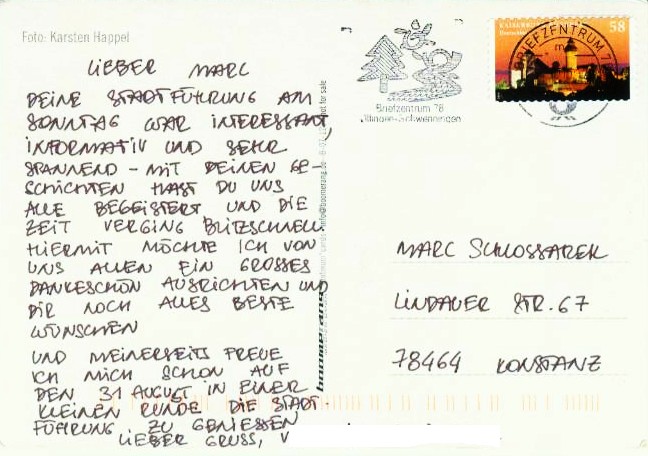 Foto: Karsten Happel
LIEBER MARC
DEINE STADTFÜHRUNG AM
SONNTAG WAR INTERESSANT,
INFORMATIV UND SEHR
SPANNEND - MIT DEINEN GE-
SCHICHTEN HAST DU UNS
ALLE BEGEISTERT UND DIE
ZEIT VERGING BLITZSCHNELL.
HIERMIT MÖCHTE ICH VON
UNS ALLEN EIN GROSSES
DANKESCHÖN AUSRICHTEN UND
DIR NOCH ALLES BESTE
WÜNSCHEN
UND MEINERSEITS FREUE
ICH MICH SCHON AUF
DEN 31 AUGUST IN EINER
KLEINEN RUNDE DIE STADT-
FÜHRUNG ZU GENIESSEN
LIEBER GRUSS, V
not for sale
info@boomerang.de
boomerang
Briefzentrum 78
Villingen-Schwenningen
58
BRIEFZENTRUM 7
MARC SCHLOSSAREK
LINDAUER STR. 67
78464 KONSTANZ